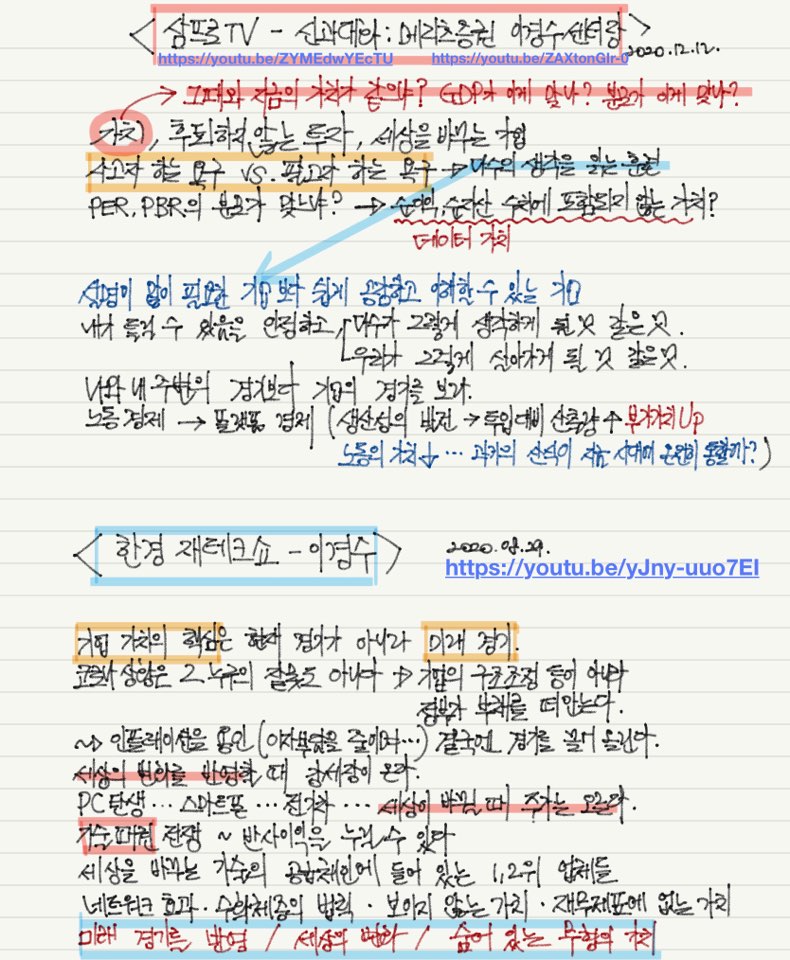 <삼프로TV - 신과대화: 메리츠증권 이경수 센터장>
2020.12.12.
https://youtu.be/ZYMEdwYEcTU https://youtu.be/ZAXtonGlr-0
그때와 지금의 가치가 같으냐? GDP가 이게 맞나? 분모가 이게 맞나?
가치, 후퇴하지 않는 투자, 세상을 바꾸는 기업
사고자 하는 욕구 vs. 팔고자 하는 욕구 → 다수의 생각을 읽는 훈련
PER, PBR의 분모가 맞느냐? → 순이익, 순자산 수치에 포함되지 않는 가치?
데이터 가치
설명이 많이 필요한 기업보다 쉽게 공감하고 이해할 수 있는 기업
내가 틀릴 수 있음을 인정하고, 다수가 그렇게 생각하게 될 것 같은 것.
우리가 그렇게 살아가게 될 것 같은 것.
나와 내 주변의 경기보다 기업의 경기를 보라.
노동 경제 → 플랫폼 경제 (생산성의 발전 → 투입 대비 산출량 ↑ 부가가치 Up
노동의 가치 ↓ … 과거의 산식이 지금 시대에 온전히 통할까?)
<한경 재테크쇼 - 이경수>
2020.08.29.
https://youtu.be/yJny-uuo7EI
기업 가치의 핵심은 현재 경기가 아니라 미래 경기.
코로나 상황은 그 누구의 잘못도 아니다 → 기업의 구조조정 등이 아니라
정부가 부채를 떠안는다.
~> 인플레이션을 용인 (이자부담을 줄이며…) 결국에 경기를 끌어 올린다.
세상의 변화를 반영할 때 강세장이 온다.
PC탄생 … 스마트폰 … 전기차 … 세상이 바뀔 때 주가는 오른다.
기술패권 전쟁 ~ 반사이익을 누릴 수 있다
세상을 바꾸는 기술의 공급체인에 들어 있는 1,2위 업체들
네트워크 효과 · 수확체증의 법칙 · 보이지 않는 가치 · 재무제표에 없는 가치
미래 경기를 반영 / 세상의 변화 / 숨어 있는 무형의 가치